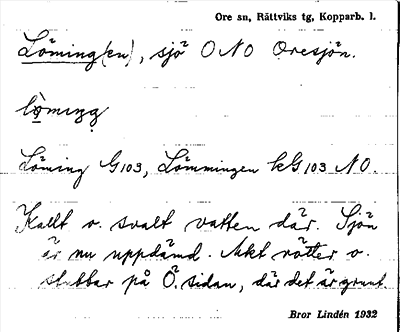 Ore sn, Rättviks tg, Kopparb. l.
Löming(en), sjö O NO Oresjön.
Löming G103, Lömmingen kG103 NO.
Kallt o. svalt vatten där. Sjön
är nu uppdämd. Mkt rötter o.
stubbar på Ö. sidan, där det är grunt.
Bror Lindén 1932